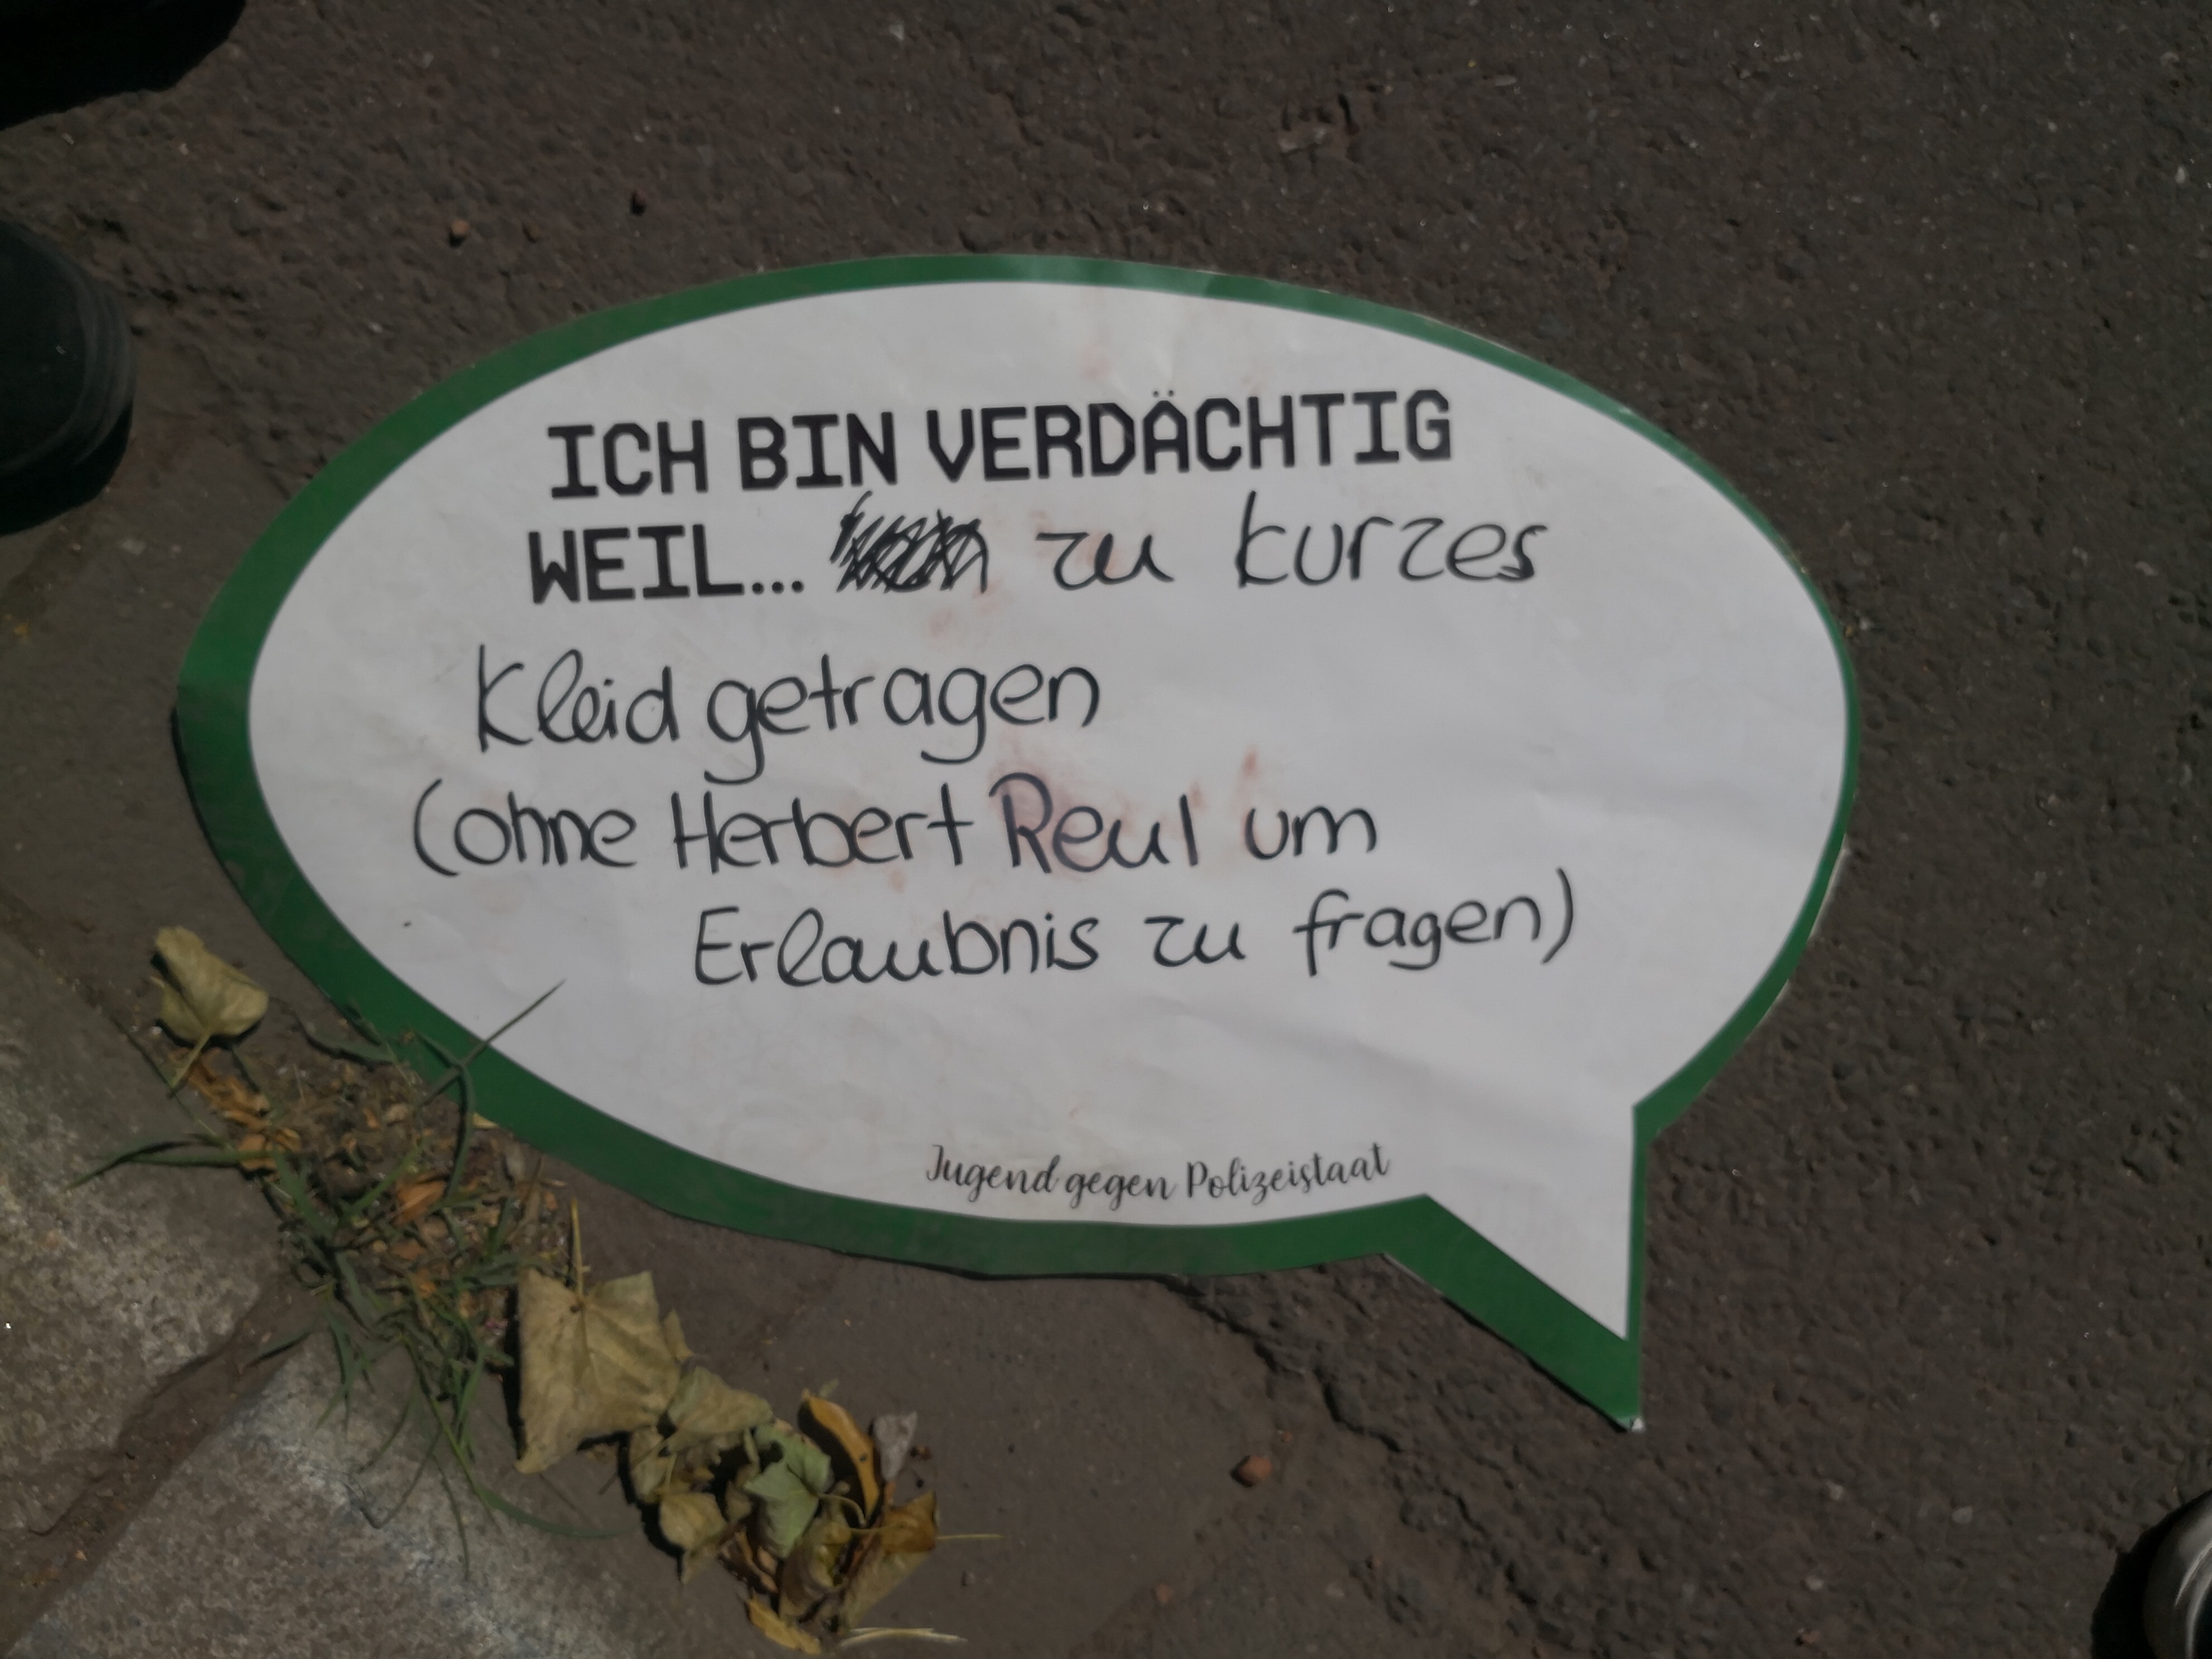 ICH BIN VERDÄCHTIG
WEIL... zu kurzes
Kleid getragen
(ohne Herbert Reul um
Erlaubnis zu fragen)
Jugend gegen Polizeistaat